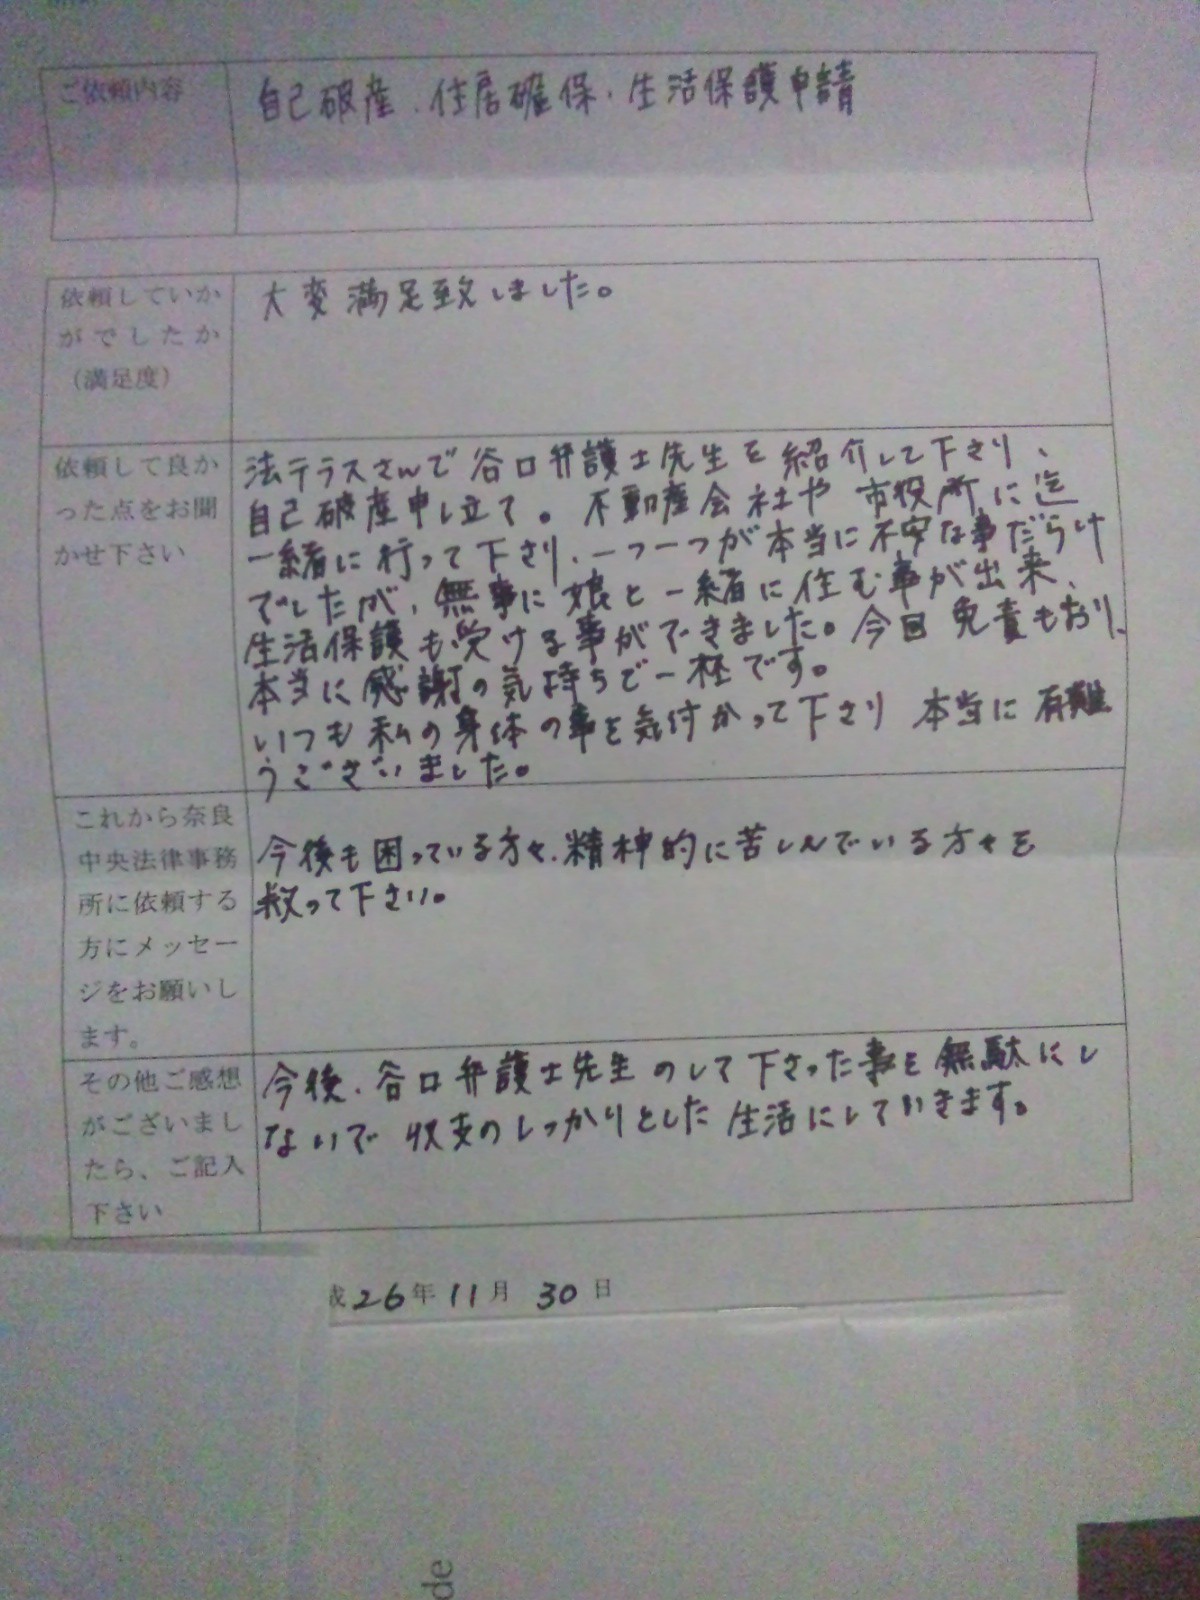 ご依頼内容
自己破産、住居確保、生活保護申請
依頼していか
がでしたか
（満足度）
大変満足致しました。
依頼して良か
った点をお聞
かせ下さい
法テラスさんで谷口弁護士先生を紹介して下さり、
自己破産申し立て。不動産会社や市役所に迄
一緒に行って下さり、一つ一つが本当に不安な事だらけ
でしたが、無事に娘と一緒に住む事が出来、
生活保護も受ける事ができました。今回免責もおり、
本当に感謝の気持ちで一杯です。
いつも私の身体の事を気付かって下さり本当に有難
うございました。
これから奈良
中央法律事務
所に依頼する
方にメッセー
ジをお願いし
ます。
今後も困っている方々、精神的に苦しんでいる方々を
救って下さい。
その他ご感想
がございまし
たら、ご記入
下さい
今後、谷口弁護士先生のして下さった事を無駄にし
ないで収支のしっかりとした生活にしていきます。
成26年11月30日
de